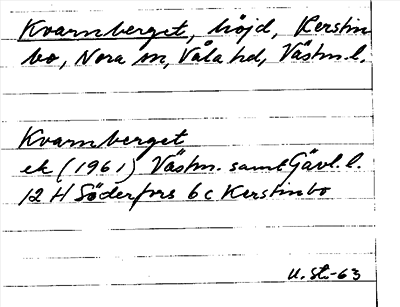 Kvarnberget, höjd, Kerstin
bo, Nora sn, Våla hd, Västm. l.
Kvarnberget
ek (1961) Västm. samt Gävl. l.
12 H Söderfors 6 c Kerstinbo
U. St. -63